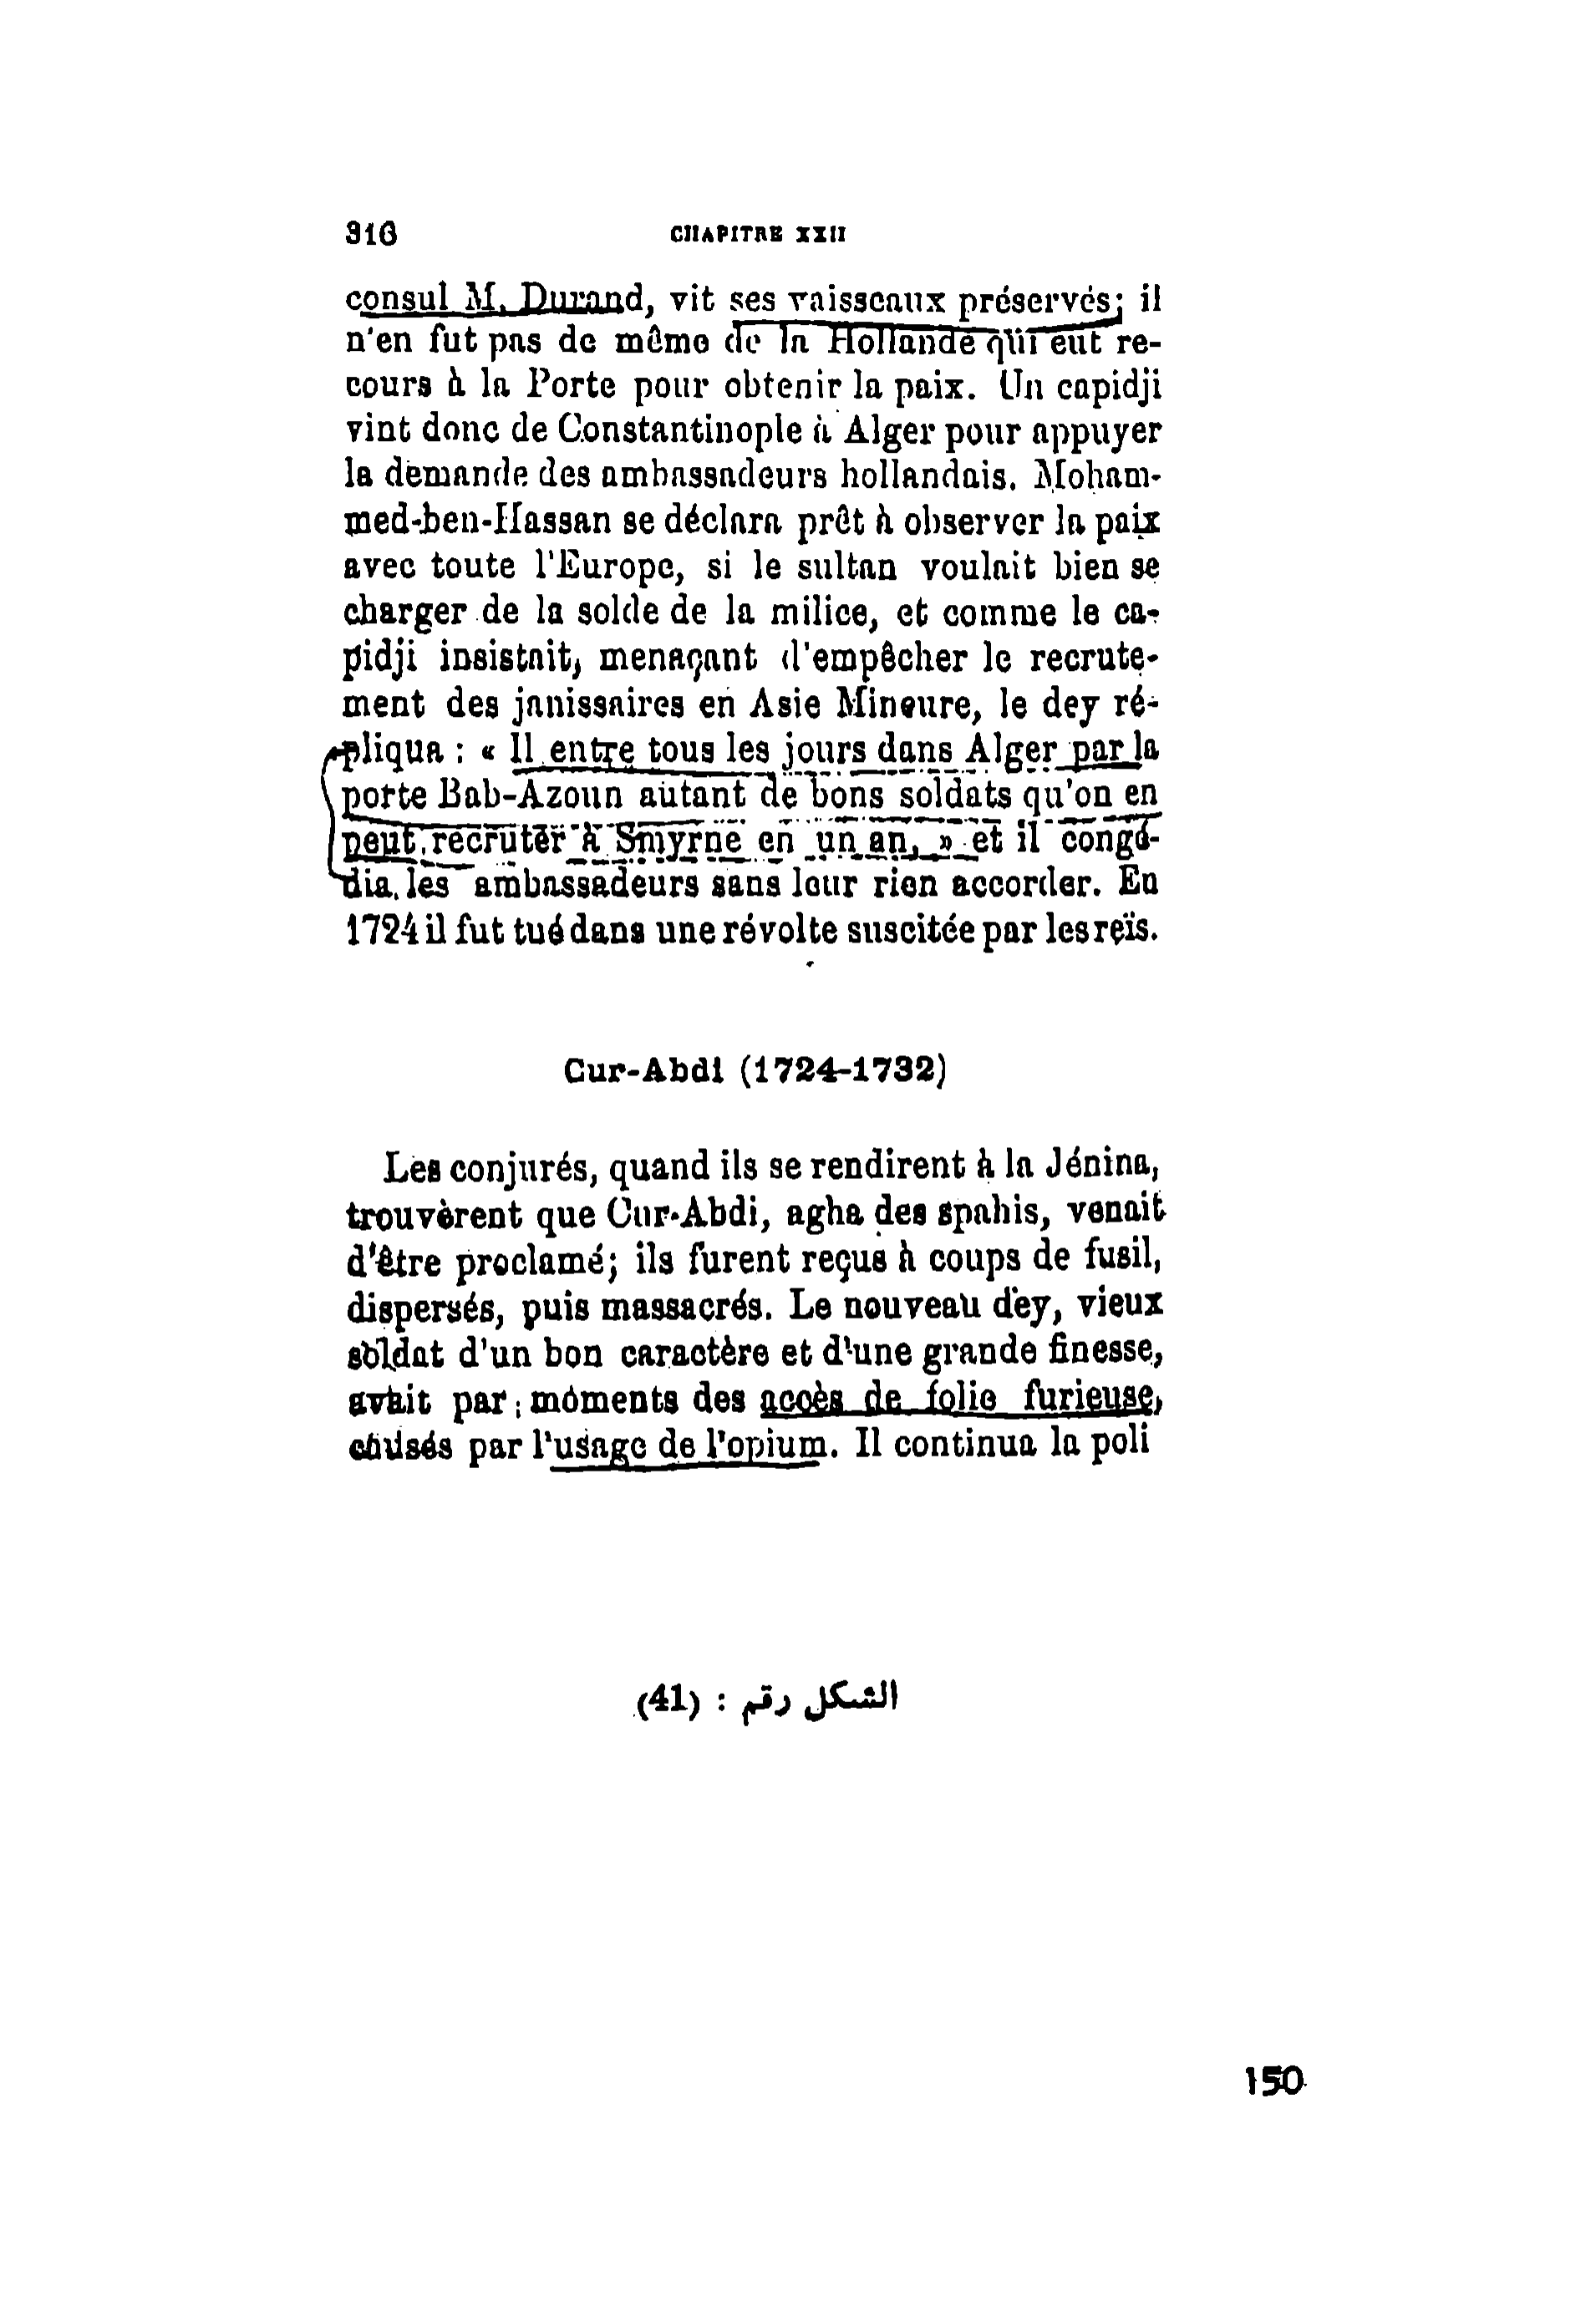 316 CHAPITRE XXII
consul M. Durand, vit ses vaisseaux préservés; il
n'en fut pas de même de la Hollande qui eut re-
cours à la Porte pour obtenir la paix. Un capidji
vint donc de Constantinople à Alger pour appuyer
la demande des ambassadeurs hollandais. Moham-
med-ben-Hassan se déclara prêt à observer la paix
avec toute l'Europe, si le sultan voulait bien se
charger de la solde de la milice, et comme le ca-
pidji insistait, menaçant d'empêcher le recrute-
ment des janissaires en Asie Mineure, le dey ré-
pliqua : « Il entre tous les jours dans Alger par la
porte Bab-Azoun autant de bons soldats qu'on en
peut recruter à Smyrne en un an, » et il congé-
dia les ambassadeurs sans leur rien accorder. En
1724 il fut tué dans une révolte suscitée par les reïs.
Cur-Abdi (1724-1732)
Les conjurés, quand ils se rendirent à la Jénina,
trouvèrent que Cur-Abdi, agha des spahis, venait
d'être proclamé; ils furent reçus à coups de fusil,
dispersés, puis massacrés. Le nouveau dey, vieux
soldat d'un bon caractère et d'une grande finesse,
avait par moments des accès de folie furieuse,
causés par l'usage de l'opium. Il continua la poli
الشكل رقم : (41)
150